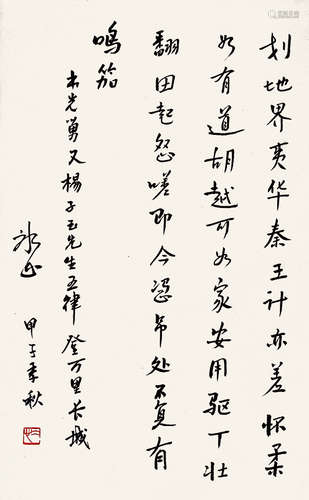 划地界夷华秦王计亦差怀柔
如有道胡越可如家安用驱丁壮
翻因起怨嗟即今凭吊处不复有
鸣笳
书先舅父杨子玉先生五律登万里长城
甲子季秋